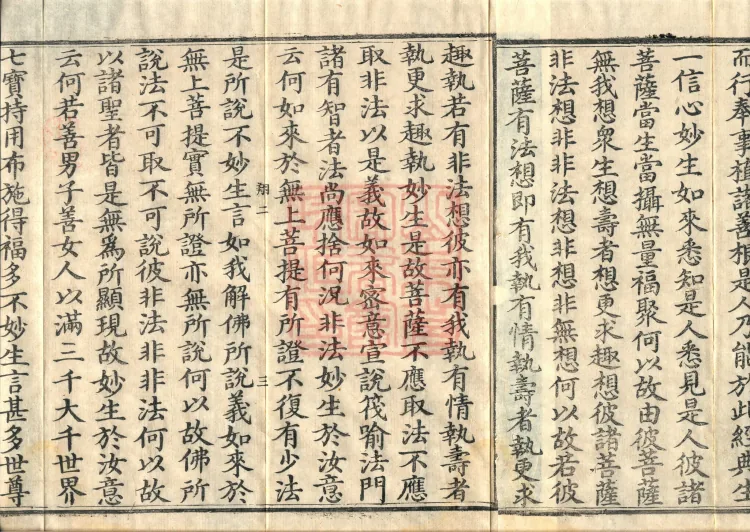 而行奉事植諸善根是人乃能於此經典生
一信心妙生如來悉知是人悉見是人彼諸
菩薩當生當攝無量福聚何以故由彼菩薩
無我想衆生想壽者想更求趣想彼諸菩薩
非法想非非法想非想非無想何以故若彼
菩薩有法想即有我執有情執壽者執更求
趣執若有非法想彼亦有我執有情執壽者
執更求趣執妙生是故菩薩不應取法不應
取非法以是義故如來密意宣說筏喻法門
諸有智者法尚應捨何況非法妙生於汝意
云何如來於無上菩提有所證不復有少法
翔二 三
是所說不妙生言如我解佛所說義如來於
無上菩提實無所證亦無所說何以故佛所
說法不可取不可說彼非法非非法何以故
以諸聖者皆是無爲所顯現故妙生於汝意
云何若善男子善女人以滿三千大千世界
七寶持用布施得福多不妙生言甚多世尊